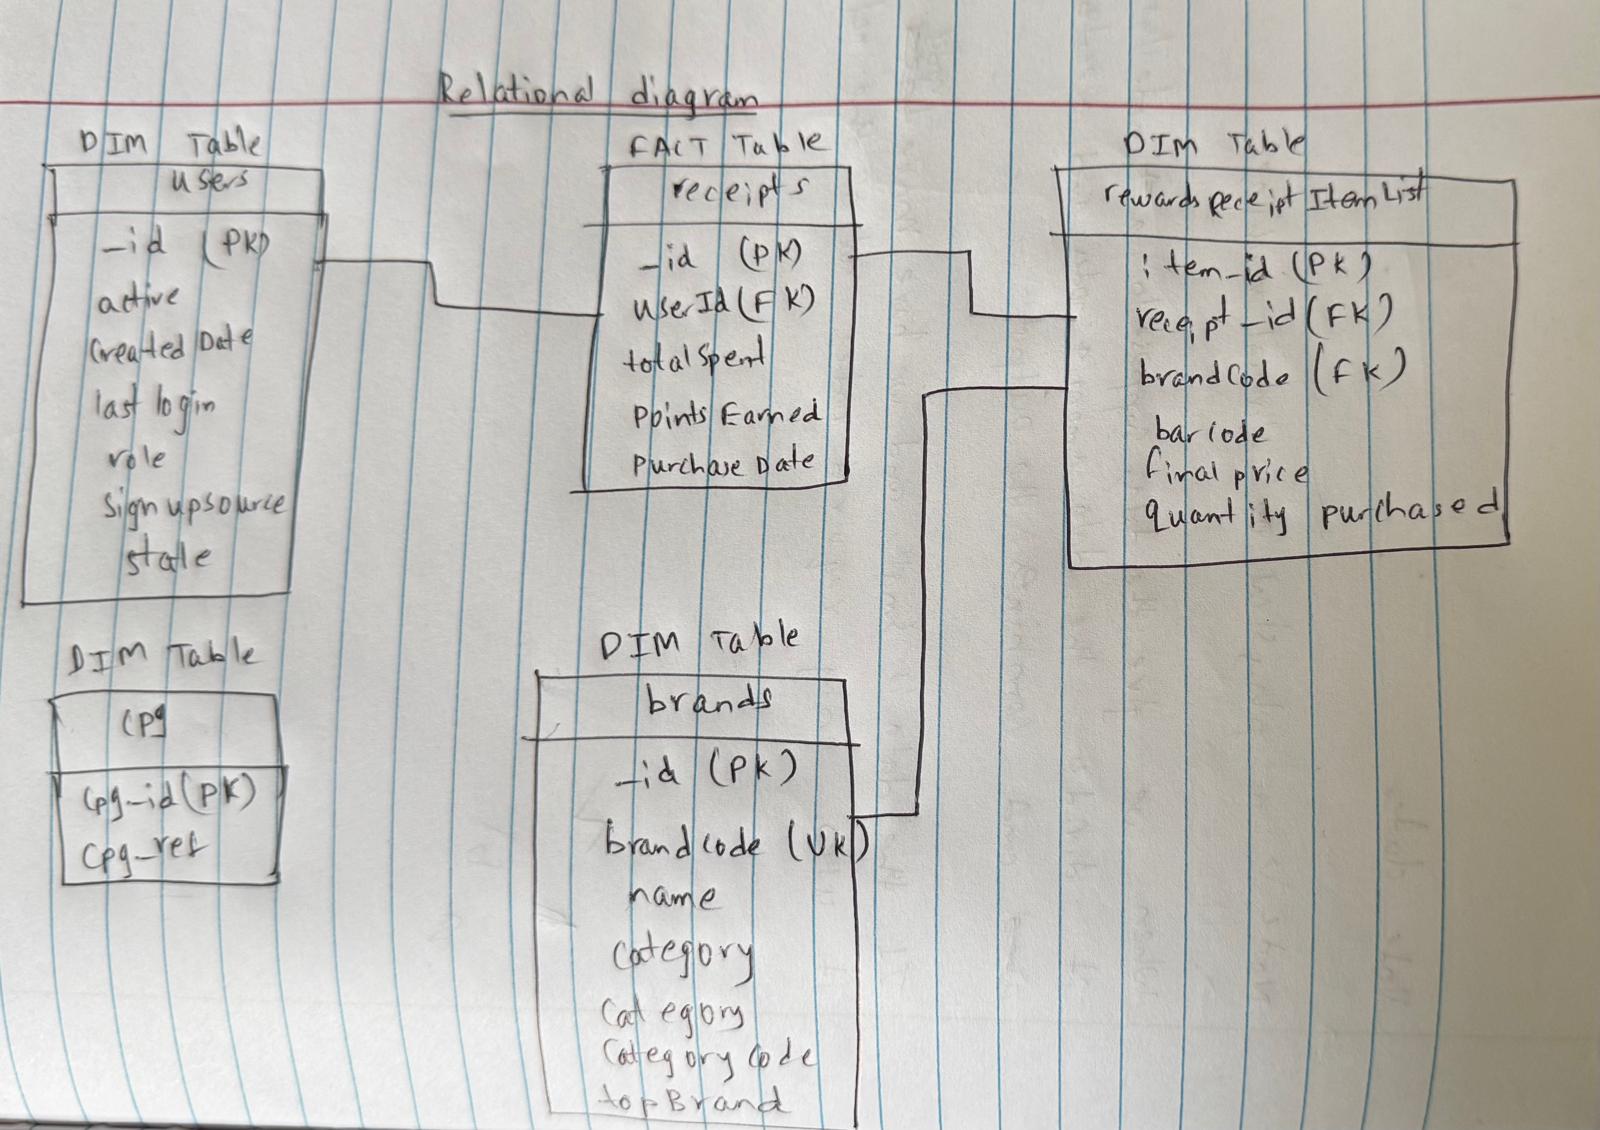 Relational diagram
DIM Table
users
_id (PK)
active
Created Date
last login
role
Signupsource
state
FACT Table
receipts
_id (PK)
userId (FK)
totalSpent
Points Earned
Purchase Date
DIM Table
rewardsReceiptItemList
item_id (PK)
receipt_id (FK)
brandCode (FK)
barcode
final price
quantity purchased
DIM Table
cpg
Cpg_id (PK)
Cpg_ref
DIM Table
brands
_id (PK)
brandcode (UK)
name
Category
Category
Category Code
topBrand